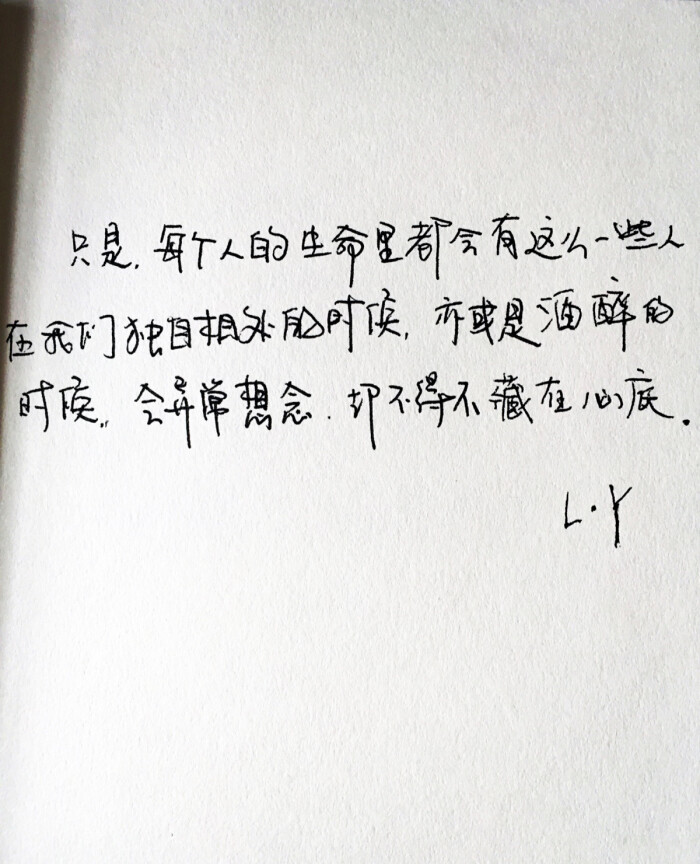 只是,每个人的生命里都会有这么一些人
在我们独自相处的时候,亦或是酒醉的
时候,会异常想念.却不得不藏在心底.
L.Y